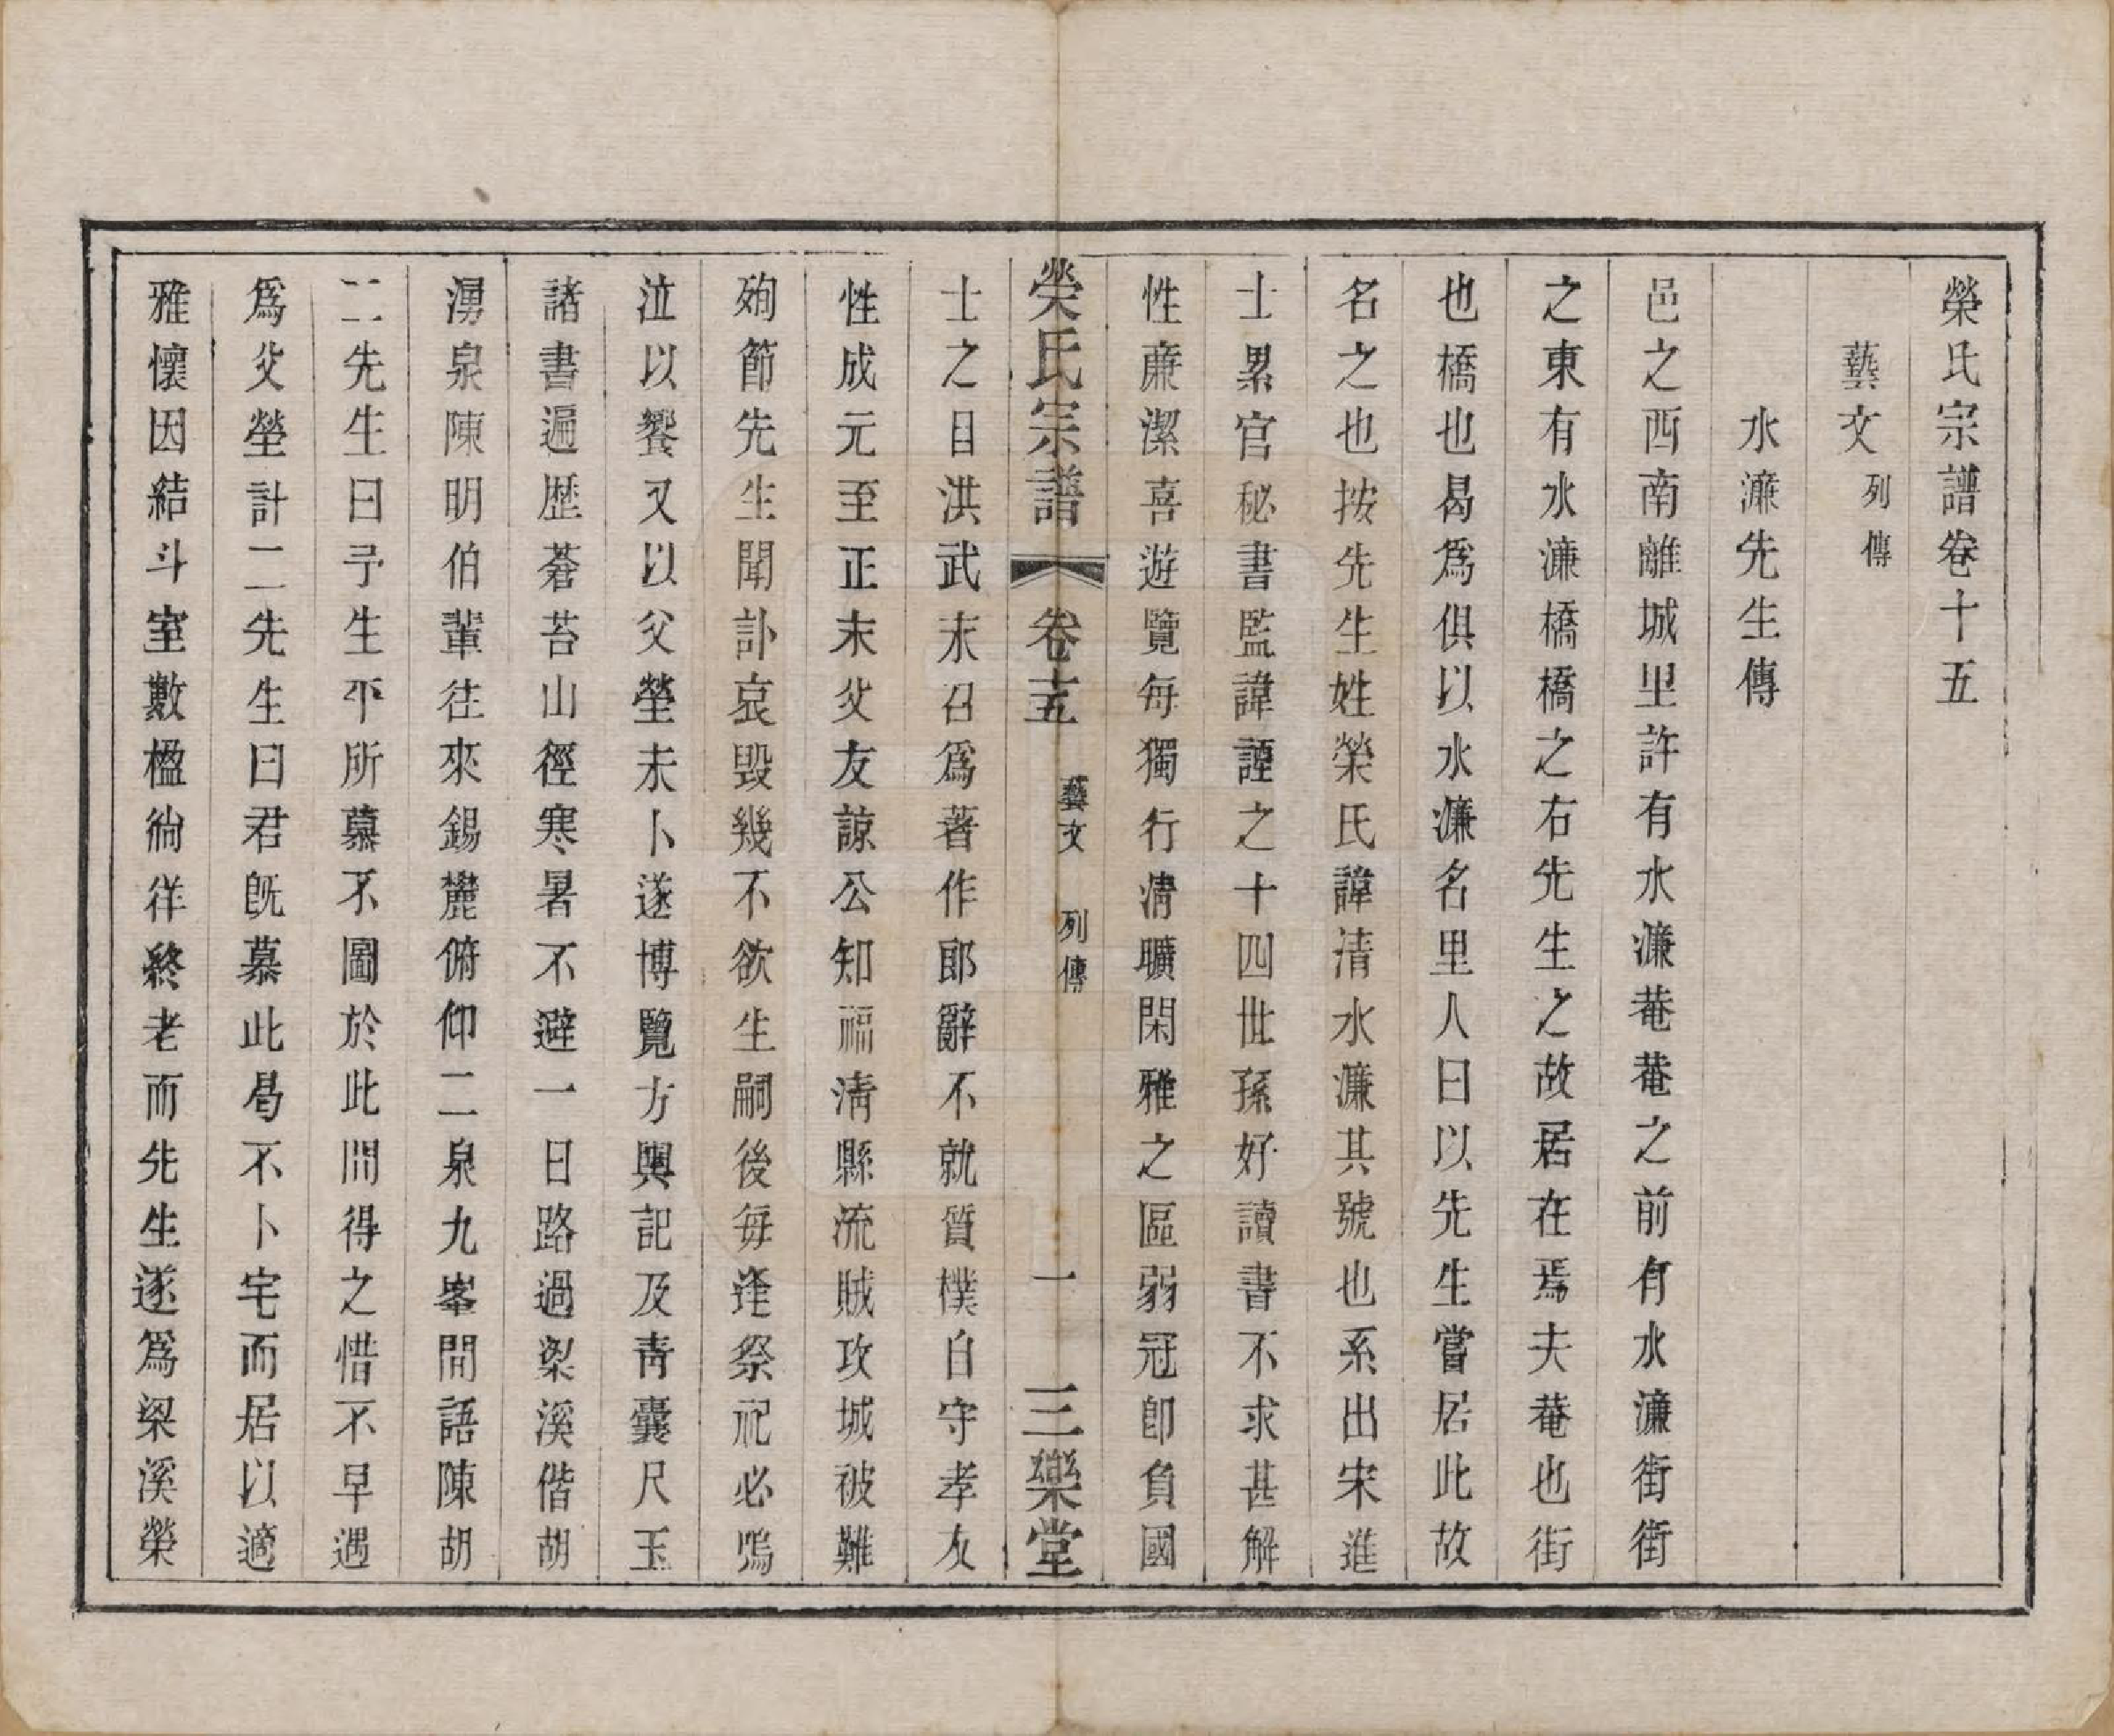 榮氏宗譜卷十五
藝文 列傳
水濂先生傳
邑之西南離城里許有水濂菴菴之前有水濂街街
之東有水濂橋橋之右先生之故居在焉夫菴也街
也橋也曷爲俱以水濂名里人曰以先生嘗居此故
名之也按先生姓榮氏諱清水濂其號也系出宋進
士累官秘書監諱諲之十四世孫好讀書不求甚解
性亷潔喜遊覽每獨行清曠閑雅之區弱冠卽負國
榮氏宗譜 卷十五 藝文 列傳 一 三樂堂
士之目洪武末召爲著作郎辭不就質樸自守孝友
性成元至正末父友諒公知福清縣流賊攻城被難
殉節先生聞訃哀毀幾不欲生嗣後每逢祭祀必嗚
泣以饗又以父塋未卜遂博覽方輿記及靑囊尺玉
諸書遍歷蒼苔山徑寒暑不避一日路過梁溪偕胡
湧泉陳明伯輩往來錫麓俯仰二泉九峯間語陳胡
二先生曰予生平所慕不圖於此間得之惜不早遇
爲父塋計二先生曰君既慕此曷不卜宅而居以適
雅懷因結斗室數楹徜徉終老而先生遂爲梁溪榮